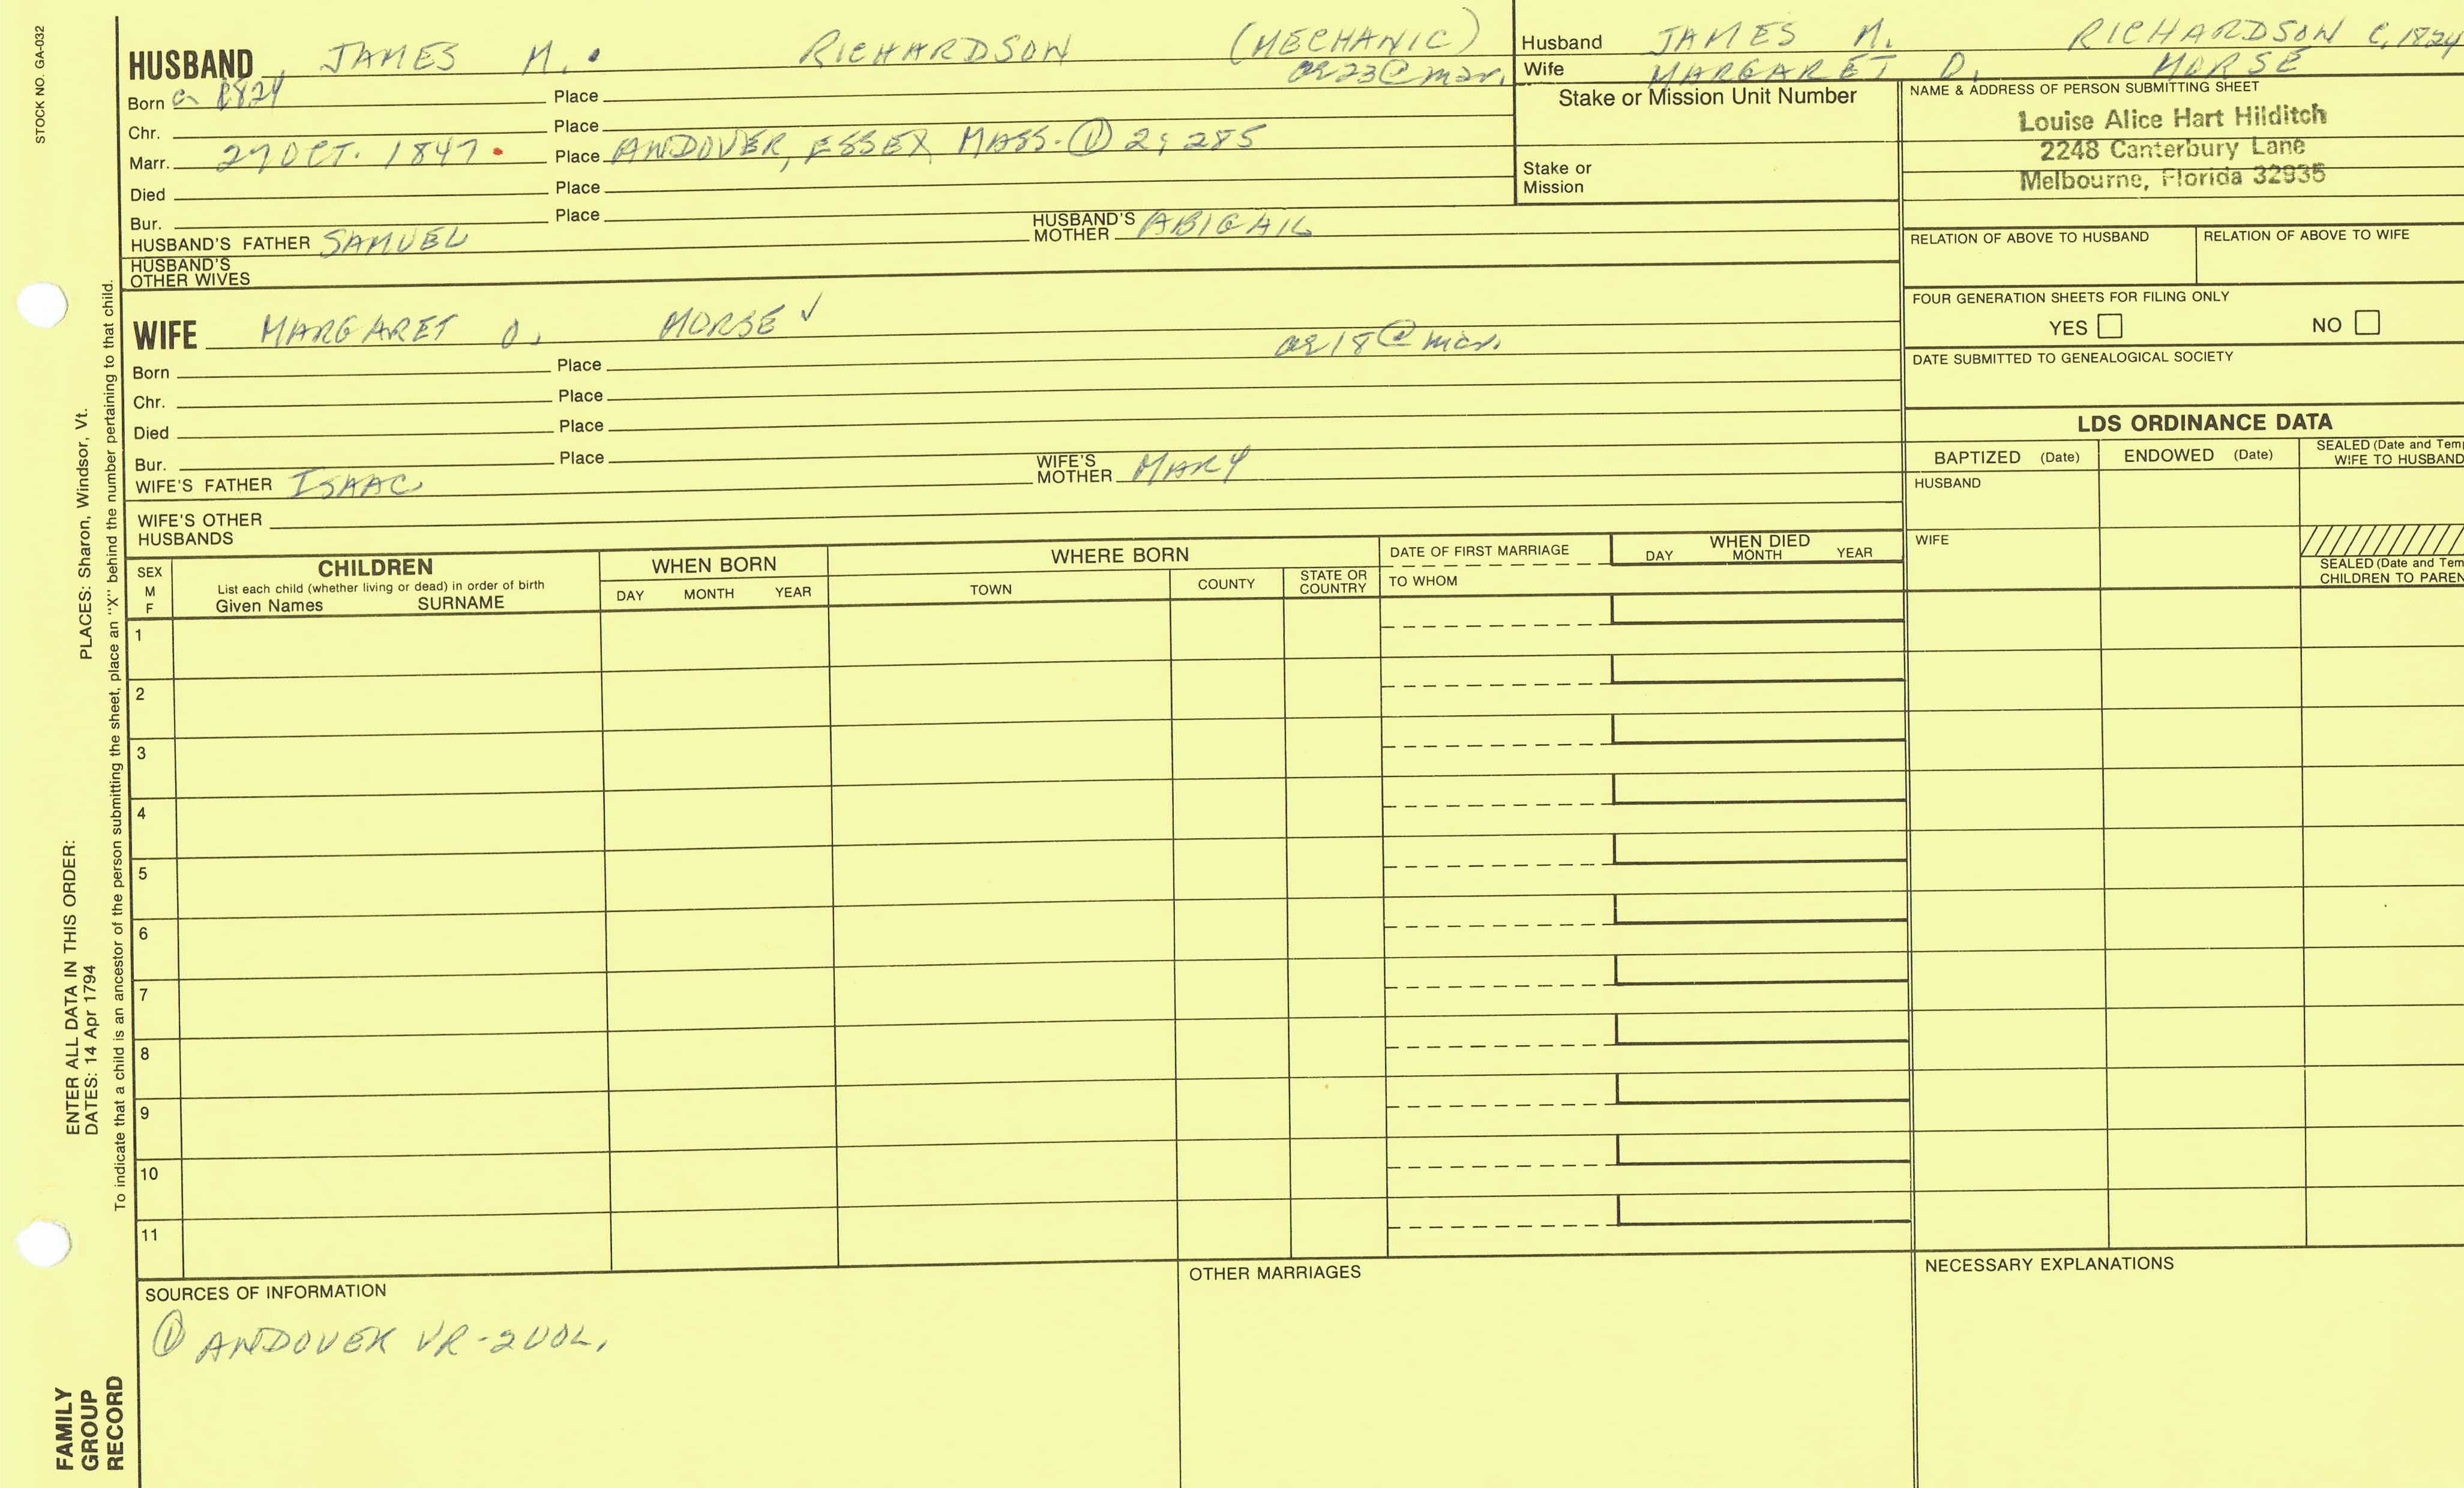 STOCK NO. GA-032
HUSBAND JAMES M. RICHARDSON (MECHANIC)
ae 23 @ mar.
Born c 1824 Place
Chr. Place
Marr. 27 OCT. 1847. Place ANDOVER, ESSEX MASS. ① 2; 285
Died Place
Bur. Place
HUSBAND'S FATHER SAMUEL HUSBAND'S MOTHER ABIGAIL
HUSBAND'S OTHER WIVES
Husband JAMES M. RICHARDSON C. 1824
Wife MARGARET D. MORSE
Stake or Mission Unit Number
Stake or
Mission
NAME & ADDRESS OF PERSON SUBMITTING SHEET
Louise Alice Hart Hilditch
2248 Canterbury Lane
Melbourne, Florida 32935
RELATION OF ABOVE TO HUSBAND RELATION OF ABOVE TO WIFE
FOUR GENERATION SHEETS FOR FILING ONLY
YES NO
DATE SUBMITTED TO GENEALOGICAL SOCIETY
WIFE MARGARET D. MORSE ✓
ae 18 @ mar.
Born Place
Chr. Place
Died Place
Bur. Place
WIFE'S FATHER ISAAC WIFE'S MOTHER MARY
WIFE'S OTHER
HUSBANDS
LDS ORDINANCE DATA
BAPTIZED (Date) ENDOWED (Date) SEALED (Date and Tem
WIFE TO HUSBAND
HUSBAND
WIFE
SEALED (Date and Tem
CHILDREN TO PAREN
SEX
M
F
CHILDREN
List each child (whether living or dead) in order of birth
Given Names SURNAME
WHEN BORN
DAY MONTH YEAR
WHERE BORN
TOWN COUNTY STATE OR COUNTRY
DATE OF FIRST MARRIAGE
TO WHOM
WHEN DIED
DAY MONTH YEAR
1
2
3
4
5
6
7
8
9
10
11
SOURCES OF INFORMATION
① ANDOVER VR-2VOL.
OTHER MARRIAGES
NECESSARY EXPLANATIONS
PLACES: Sharon, Windsor, Vt.
To indicate that a child is an ancestor of the person submitting the sheet, place an "X" behind the number pertaining to that child.
ENTER ALL DATA IN THIS ORDER:
DATES: 14 Apr 1794
FAMILY
GROUP
RECORD